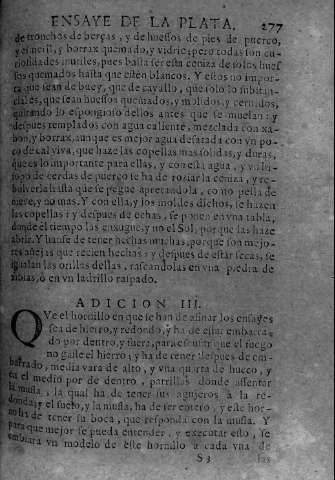 ENSAYE DE LA PLATA. 277
de tronchos de berças, y de huessos de pies de puerco,
y esmeril, y borrax quemado, y vidrio; pero todas son cu-
riosidades inutiles, pues basta ser esta ceniza de solos hues
sos quemados hasta que esten blancos. Y estos no impor-
ta que sean de buey, que de cavallo, que solo lo substan-
cial es, que sean huessos quemados, y molidos, y cernidos,
quitando lo espongioso dellos antes que se muelan: y
despues templados con agua caliente, mezclada con xa-
bon, y borrax, aun que es mejor agua desatada con vn po-
co de cal viva, que haze las copellas mas solidas, y duras,
que es lo importante para ellas, y con esta agua, y vn hi-
sopo de cerdas de puerco se ha de roziar la ceniza, y re-
bolverla hasta que se pegue apretandola, como pella de
nieve, y no mas. Y con ella, y los moldes dichos, se hazen
las copellas: y despues de echas, se ponen en vna tabla,
donde el tiempo las enxugue, y no el Sol, porque las haze
abrir. Y hanse de tener hechas muchas, porque son mejo-
res añejas que recien hechas: y despues de estar secas, se
igualan las orillas dellas, rascandolas en vna piedra de
en vn ladrillo raspado.
ADICION III.
QVe el hornillo en que se han de afinar los ensayes
sea de hierro, y redondo, y ha de estar embarra-
do por dentro, y fuera, para escusar que el fuego
no gaste el hierro; y ha de tener despues de em-
barrado, media vara de alto, y vna quarta de hueco, y
en el medio por de dentro, parrillas donde assentar
la mufla, la qual ha de tener sus agujeros à la re-
donda: y el suelo, y la mufla, ha de ser entero, y este hor-
no ha de tener su boca, que responda con la mufla. Y
para que mejor se pueda entender, y executar esto, se
embiara vn modelo de este hornillo à cada vna de
S 3 las